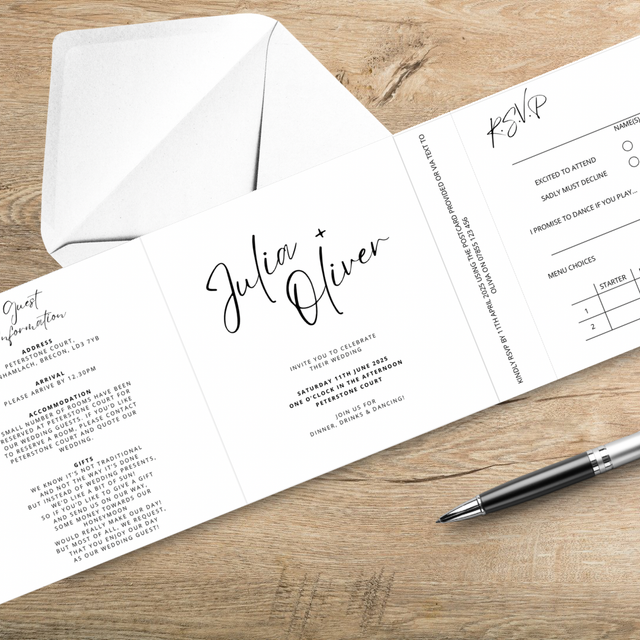 Guest
Information
ADDRESS
PETERSTONE COURT,
LD3 7YB
BRECON,
ARRIVAL
PLEASE ARRIVE BY 12.30PM
ACCOMMODATION
SMALL NUMBER OF ROOMS HAVE BEEN
RESERVED AT PETERSTONE COURT FOR
OUR WEDDING GUESTS. IF YOU'D LIKE
TO RESERVE A ROOM, PLEASE CONTACT
PETERSTONE COURT AND QUOTE OUR
WEDDING.
GIFTS
WE KNOW IT'S NOT TRADITIONAL
AND NOT THE WAY IT'S DONE
BUT INSTEAD OF WEDDING PRESENTS,
WE'D LIKE A BIT OF SUN!
SO IF YOU'D LIKE TO GIVE A GIFT
AND SEND US ON OUR WAY,
SOME MONEY TOWARDS OUR
HONEYMOON
WOULD REALLY MAKE OUR DAY!
BUT MOST OF ALL, WE REQUEST,
THAT YOU ENJOY OUR DAY
AS OUR WEDDING GUEST!
Julia +
Oliver
INVITE YOU TO CELEBRATE
THEIR WEDDING
SATURDAY 11TH JUNE 2025
ONE O'CLOCK IN THE AFTERNOON
PETERSTONE COURT
JOIN US FOR
DINNER, DRINKS & DANCING!
KINDLY RSVP BY 11TH APRIL 2025 USING THE POSTCARD PROVIDED OR VIA TEXT TO
OLIVIA ON 07855 123 456
R.S.V.P
NAME(S)
EXCITED TO ATTEND
SADLY MUST DECLINE
I PROMISE TO DANCE IF YOU PLAY...
MENU CHOICES
STARTER
1
2